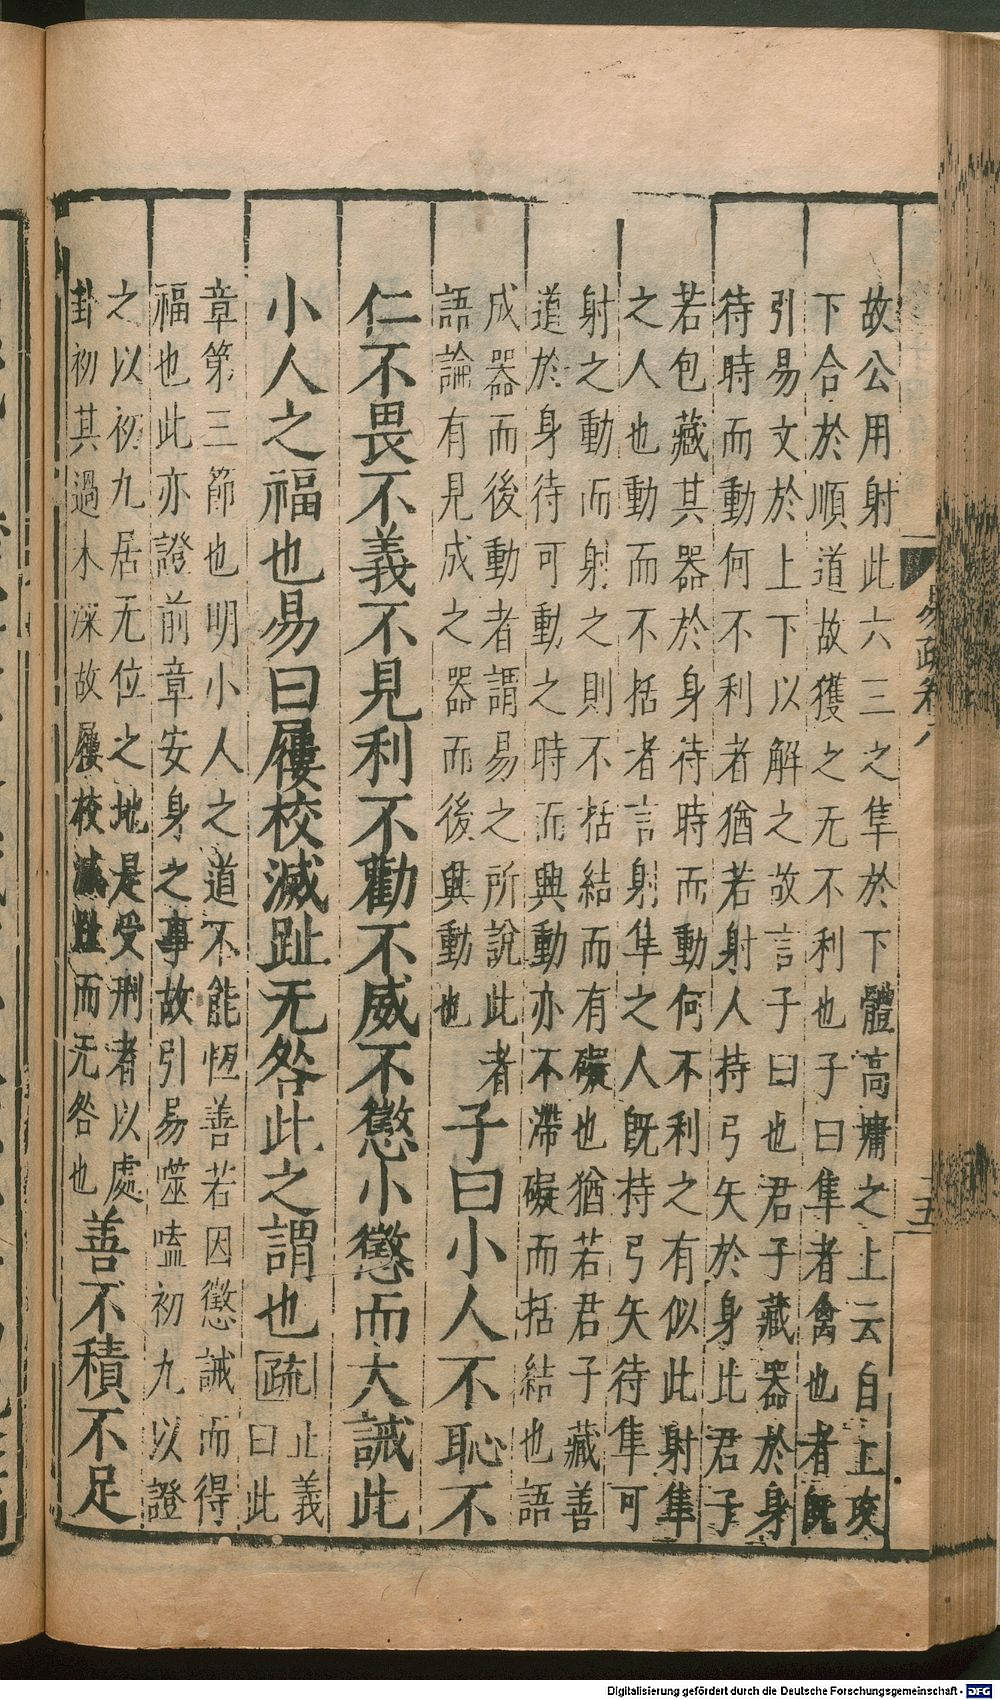 故公用射此六三之隼於下體高墉之上云自上攻
下合於順道故獲之无不利也子曰隼者禽也者既
引易文於上下以解之故言子曰也君子藏器於身
待時而動何不利者猶若射人持弓矢於身比君子
若包藏其器於身待時而動何不利之有似此射隼
之人也動而不括者言射隼之人既持弓矢待隼可
射之動而射之則不括結而有礙也猶若君子藏善
道於身待可動之時而興動亦不滯礙而括結也語
成器而後動者謂易之所說此者
語論有見成之器而後興動也
子曰小人不恥不
仁不畏不義不見利不勸不威不懲小懲而大誡此
小人之福也易曰屨校滅趾无咎此之謂也
疏
正義
曰此
章第三節也明小人之道不能恆善若因懲誡而得
福也此亦證前章安身之事故引易噬嗑初九以證
之以初九居无位之地是受刑者以處
卦初其過未深故屨校滅趾而无咎也
善不積不足
易疏卷八
五
Digitalisierung gefördert durch die Deutsche Forschungsgemeinschaft - DFG